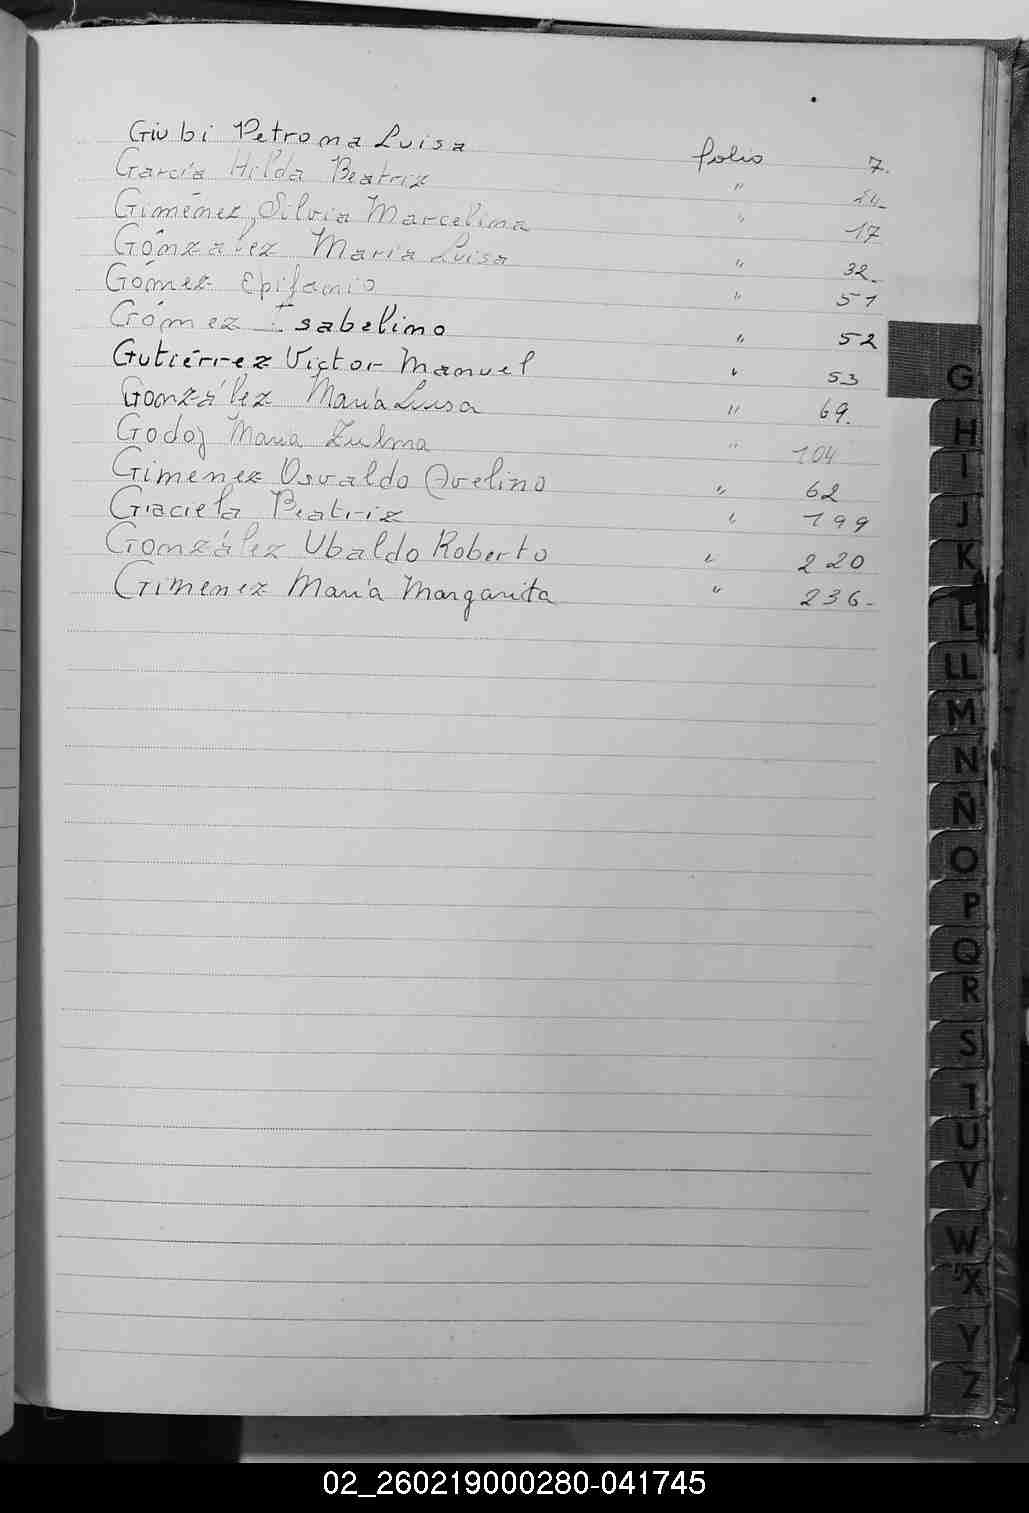 Giubi Petrona Luisa folio 7.
García Hilda Beatriz " 14
Giménez, Silvia Marcelina " 17
Gónzalez María Luisa " 32.
Gómez Epifanio " 51
Gómez Isabelino " 52
Gutiérrez Victor Manuel " 53
González María Luisa " 69.
Godoy María Zulma " 104
Gimenez Osvaldo Avelino " 62
Graciela Beatriz " 199
González Ubaldo Roberto " 220
Gimenez María Margarita " 236-
G
H
I
J
K
L
LL
M
N
Ñ
O
P
Q
R
S
U
V
W
X
Y
Z
02_260219000280-041745